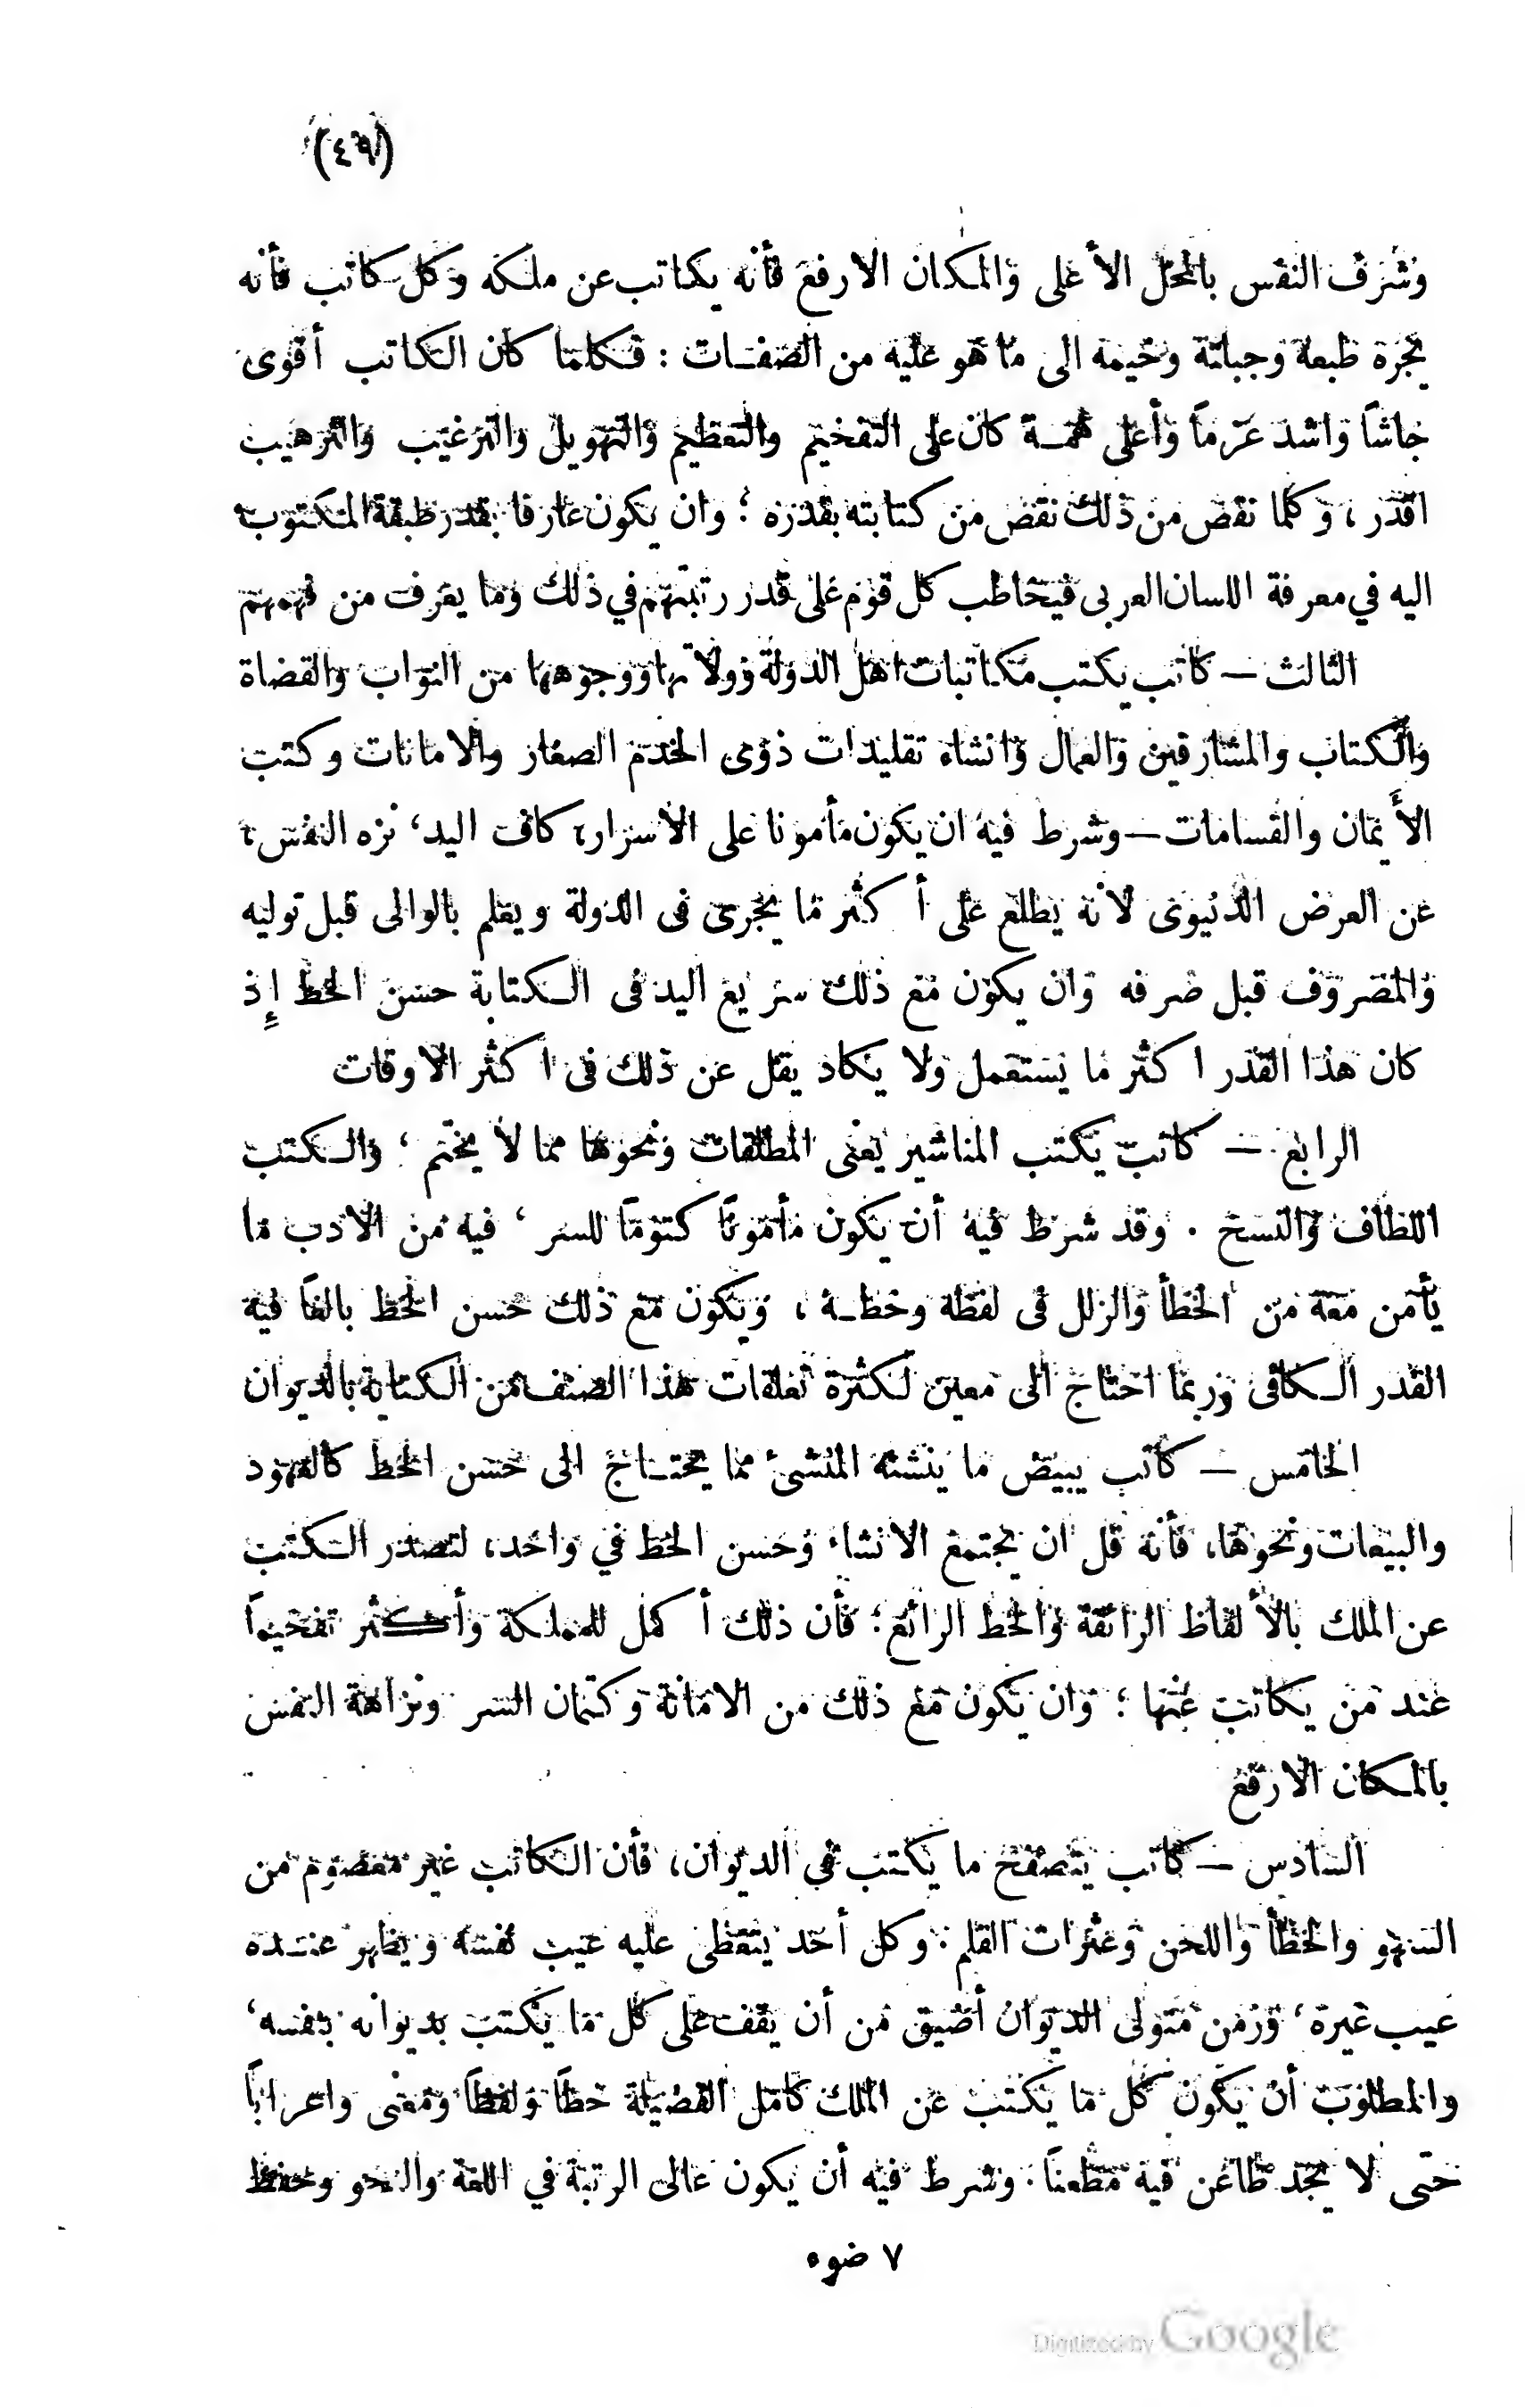 (٤٩)
وشرف النفس بالمحل الأعلى والمكان الارفع فأنه يكاتب عن ملكه وكل كاتب فأنه
يجره طبعه وجبلته وخيمه الى ما هو عليه من الصفات : فكلما كان الكاتب أقوى
جاشاً واشد عزماً وأعلى همة كان على التفخيم والتعظيم والتهويل والترغيب والترهيب
اقدر ، وكلما نقص من ذلك نقص من كتابته بقدره ؛ وان يكون عارفا بقدر طبقة المكتوب
اليه في معرفة اللسان العربى فيخاطب كل قوم على قدر رتبتهم في ذلك وما يعرف من فهمهم
الثالث — كاتب يكتب مكاتبات اهل الدولة وولاتها ووجوهها من النواب والقضاة
والكتاب والمشارفين والعمال وانشاء تقليدات ذوى الخدم الصغار والامانات وكتب
الأيمان والقسامات — وشرط فيه ان يكون مأمونا على الأسرار، كاف اليد، نزه النفس،
عن العرض الدنيوى لانه يطلع على أكثر ما يجرى فى الدولة ويعلم بالوالى قبل توليه
والمصروف قبل صرفه وان يكون مع ذلك سريع اليد فى الكتابة حسن الخط إذ
كان هذا القدر اكثر ما يستعمل ولا يكاد يقل عن ذلك فى اكثر الاوقات
الرابع — كاتب يكتب المناشير يعنى المطلقات ونحوها مما لا يختم ؛ والكتب
اللطاف والنسخ . وقد شرط فيه أن يكون مأموناً كتوماً للسر ، فيه من الادب ما
يأمن معه من الخطأ والزلل فى لفظه وخطه ، ويكون مع ذلك حسن الخط بالغاً فيه
القدر الكافى وربما احتاج الى معين لكثرة تعلقات هذا الصنف من الكتابة بالديوان
الخامس — كاتب يبيض ما ينشئه المنشئ مما يحتاج الى حسن الخط كالعهود
والبيعات ونحوها، فأنه قل ان يجتمع الانشاء وحسن الخط في واحد، لتصدر الكتب
عن الملك بالألفاظ الرائقة والخط الرائع؛ فأن ذلك أكمل للمملكة وأكثر تفخيماً
عند من يكاتب عنها ؛ وان يكون مع ذلك من الامانة وكتمان السر ونزاهة النفس
بالمكان الارفع
السادس — كاتب يتصفح ما يكتب في الديوان، فأن الكاتب غير معصوم من
السهو والخطأ واللحن وعثرات القلم . وكل أحد يتغطى عليه عيب نفسه ويظهر عنده
عيب غيره ، وزمن متولى الديوان أضيق من أن يقف على كل ما يكتب بديوانه بنفسه،
والمطلوب أن يكون كل ما يكتب عن الملك كامل الفضيلة خطاً ولفظاً ومعنى واعراباً
حتى لا يجد طاعن فيه مطعناً . وشرط فيه أن يكون عالى الرتبة في اللغة والنحو وحفظ
٧ ضوء
Digitized by Google